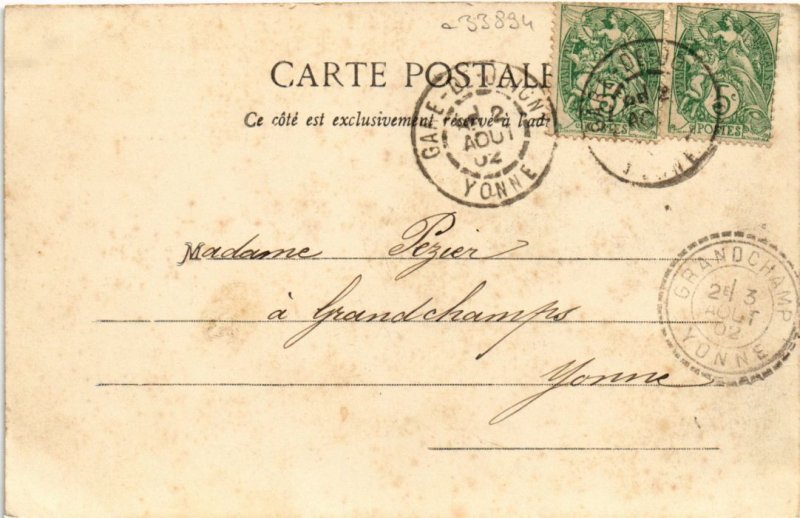 a 33894
CARTE POSTALE
Ce côté est exclusivement réservé à l'adr
GARE-D
YONNE
2
AOUT
02
5c
POSTES
YONNE
GRANDCHAMP
2E 3
AOUT
02
YONNE
Madame Pezier
à Grandchamps
Yonne